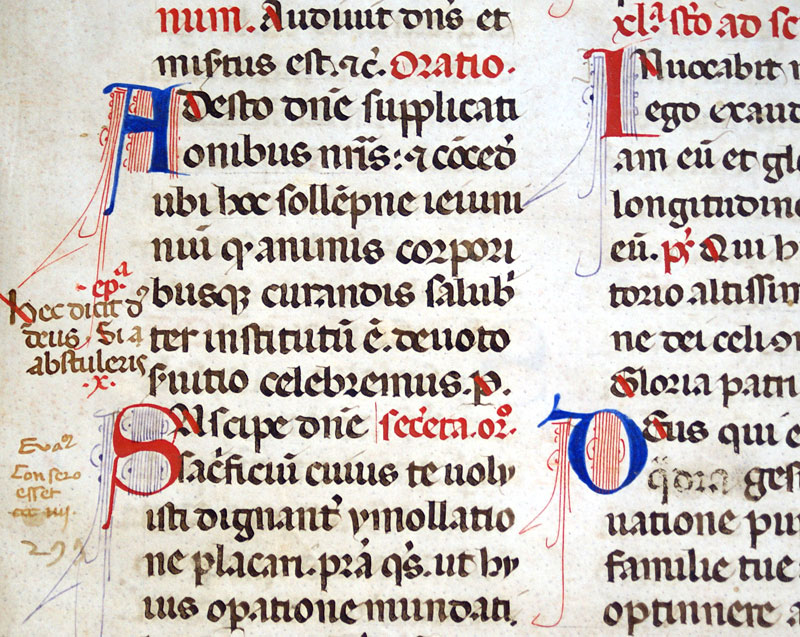 num. Audiuit dn̄s et
misertus est. ⁊c̄. Oratio.
Adesto dn̄e supplicati
onibus nr̄is: ⁊ cōced
ubi hoc sollēpne ieiuni
nuū q. animis corpori
busq; curandis salub
ter institutū ē. deuoto
suitio celebremus. p.
Suscipe dn̄e secreta. or.
sac̄ficiū cuius te uolu
isti dignant ymollatio
ne placari. prā qs. ut hu
ius opatione mundati.
ep.a
hec dicit d
deus. Si a
abstuleris
.x.
Eua
Con sero
esset
xla sto ad sc
Inuocabit
ego exaud
am eū et glo
longitudine
eū. ps Qui h
torio altissim
ne dei celi
Gloria patri
Deus qui e
q̄dra ges
uatione pu
familie tue
optinnere a